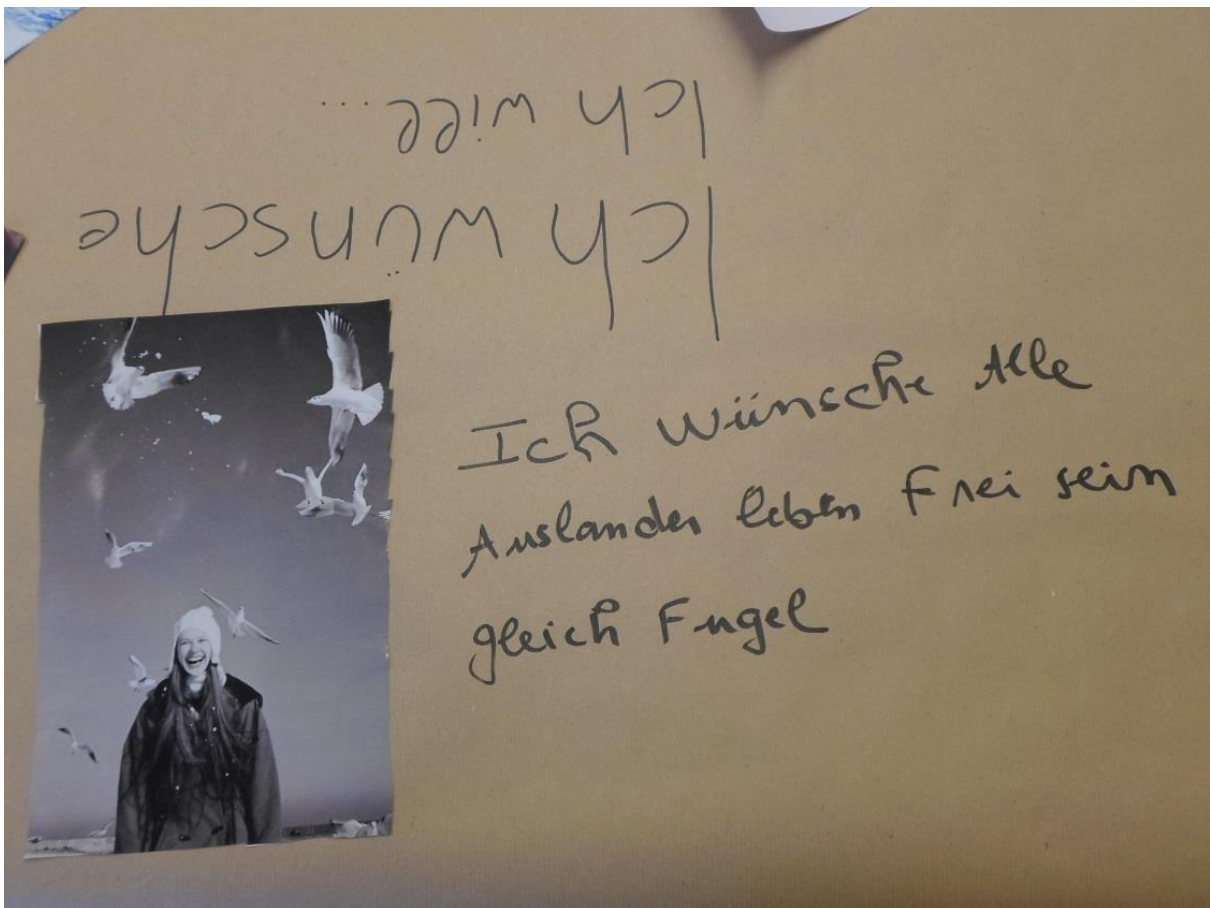 Ich will...
Ich wünsche
Ich wünsche Alle
Auslander leben Frei sein
gleich Fugel